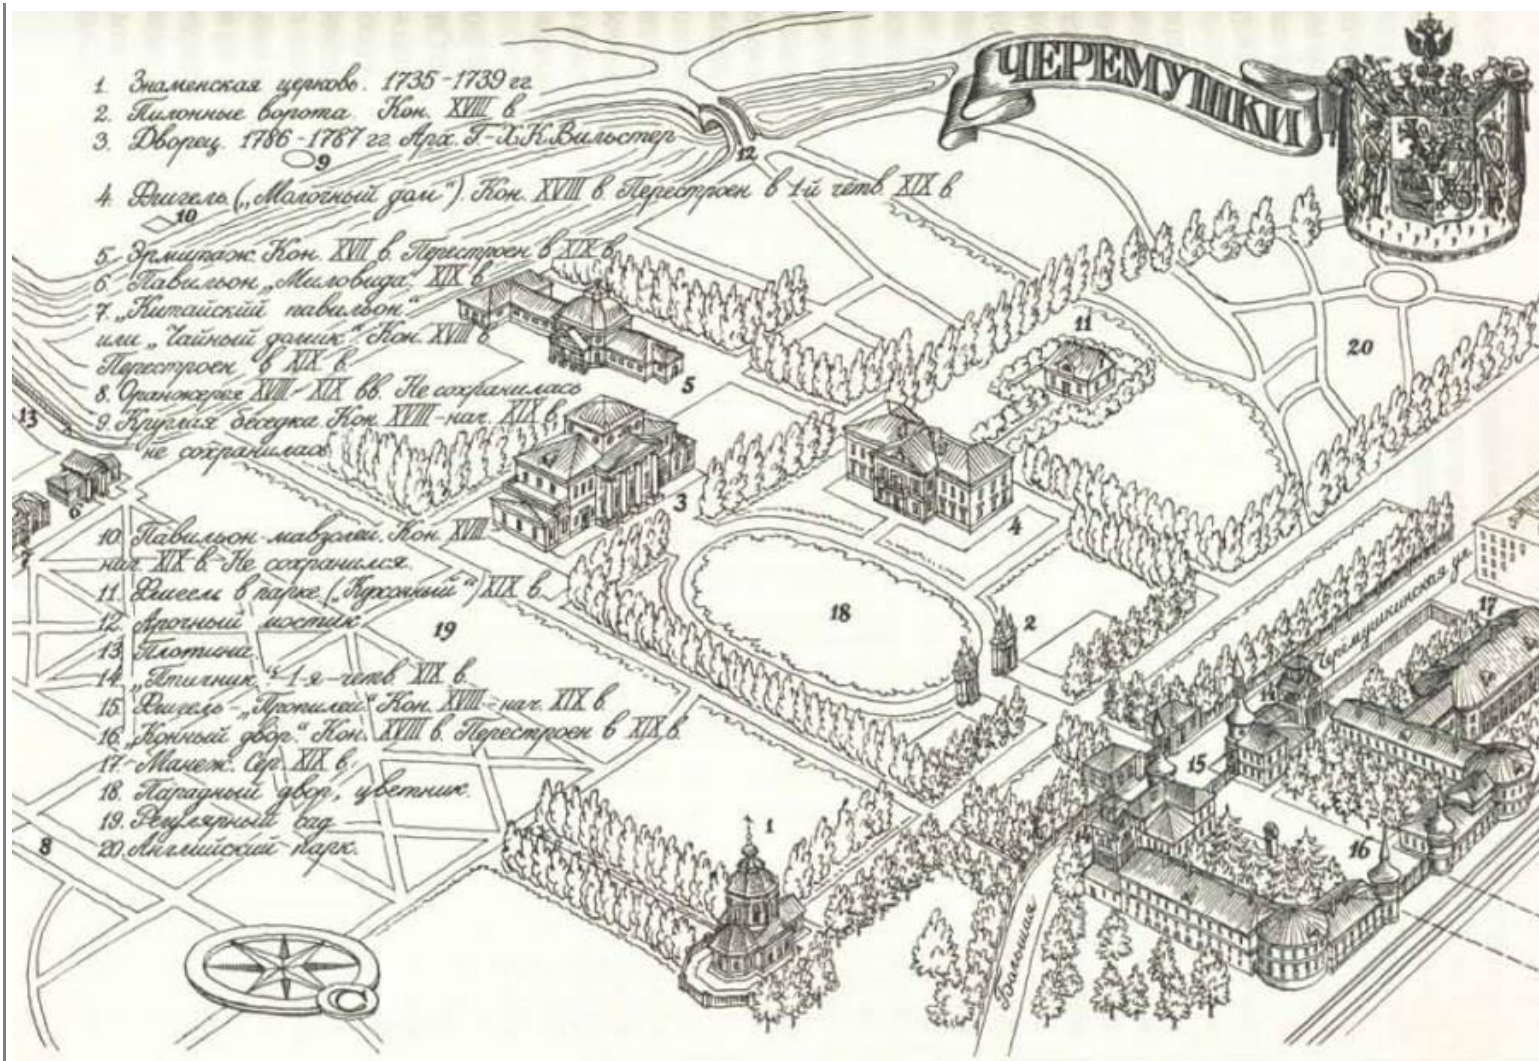 ЧЕРЕМУШКИ
1. Знаменская церковь. 1735-1739 гг.
2. Пилонные ворота. Кон. XVIII в.
3. Дворец. 1786-1787 гг. Арх. Г.-Х.К.Вильстер
4. Флигель („Молочный дом"). Кон. XVIII в. Перестроен в 1-й четв. XIX в.
5. Эрмитаж. Кон. XVII в. Перестроен в XIX в.
6. Павильон „Миловида". XIX в.
7. „Китайский павильон"
или „Чайный домик". Кон. XVIII в.
Перестроен в XIX в.
8. Оранжерея XVIII-XIX вв. Не сохранилась
9. Круглая беседка. Кон. XVIII-нач. XIX в.
не сохранилась
10. Павильон-мавзолей. Кон. XVIII
нач. XIX в. Не сохранился.
11. Флигель в парке („Кухонный") XIX в.
12. Арочный мостик
13. Плотина.
14. „Птичник". 1-я-четв. XIX в.
15. Флигель-„Пропилеи" Кон. XVIII-нач. XIX в.
16. „Конный двор." Кон. XVIII в. Перестроен в XIX в.
17. Манеж. Сер. XIX в.
18. Парадный двор, цветник.
19. Регулярный сад
20. Английский парк.
9
10
12
11
20
5
13
6
7
3
4
18
2
19
17
Черемушкинская ул.
14
15
1
16
8
Большая
С